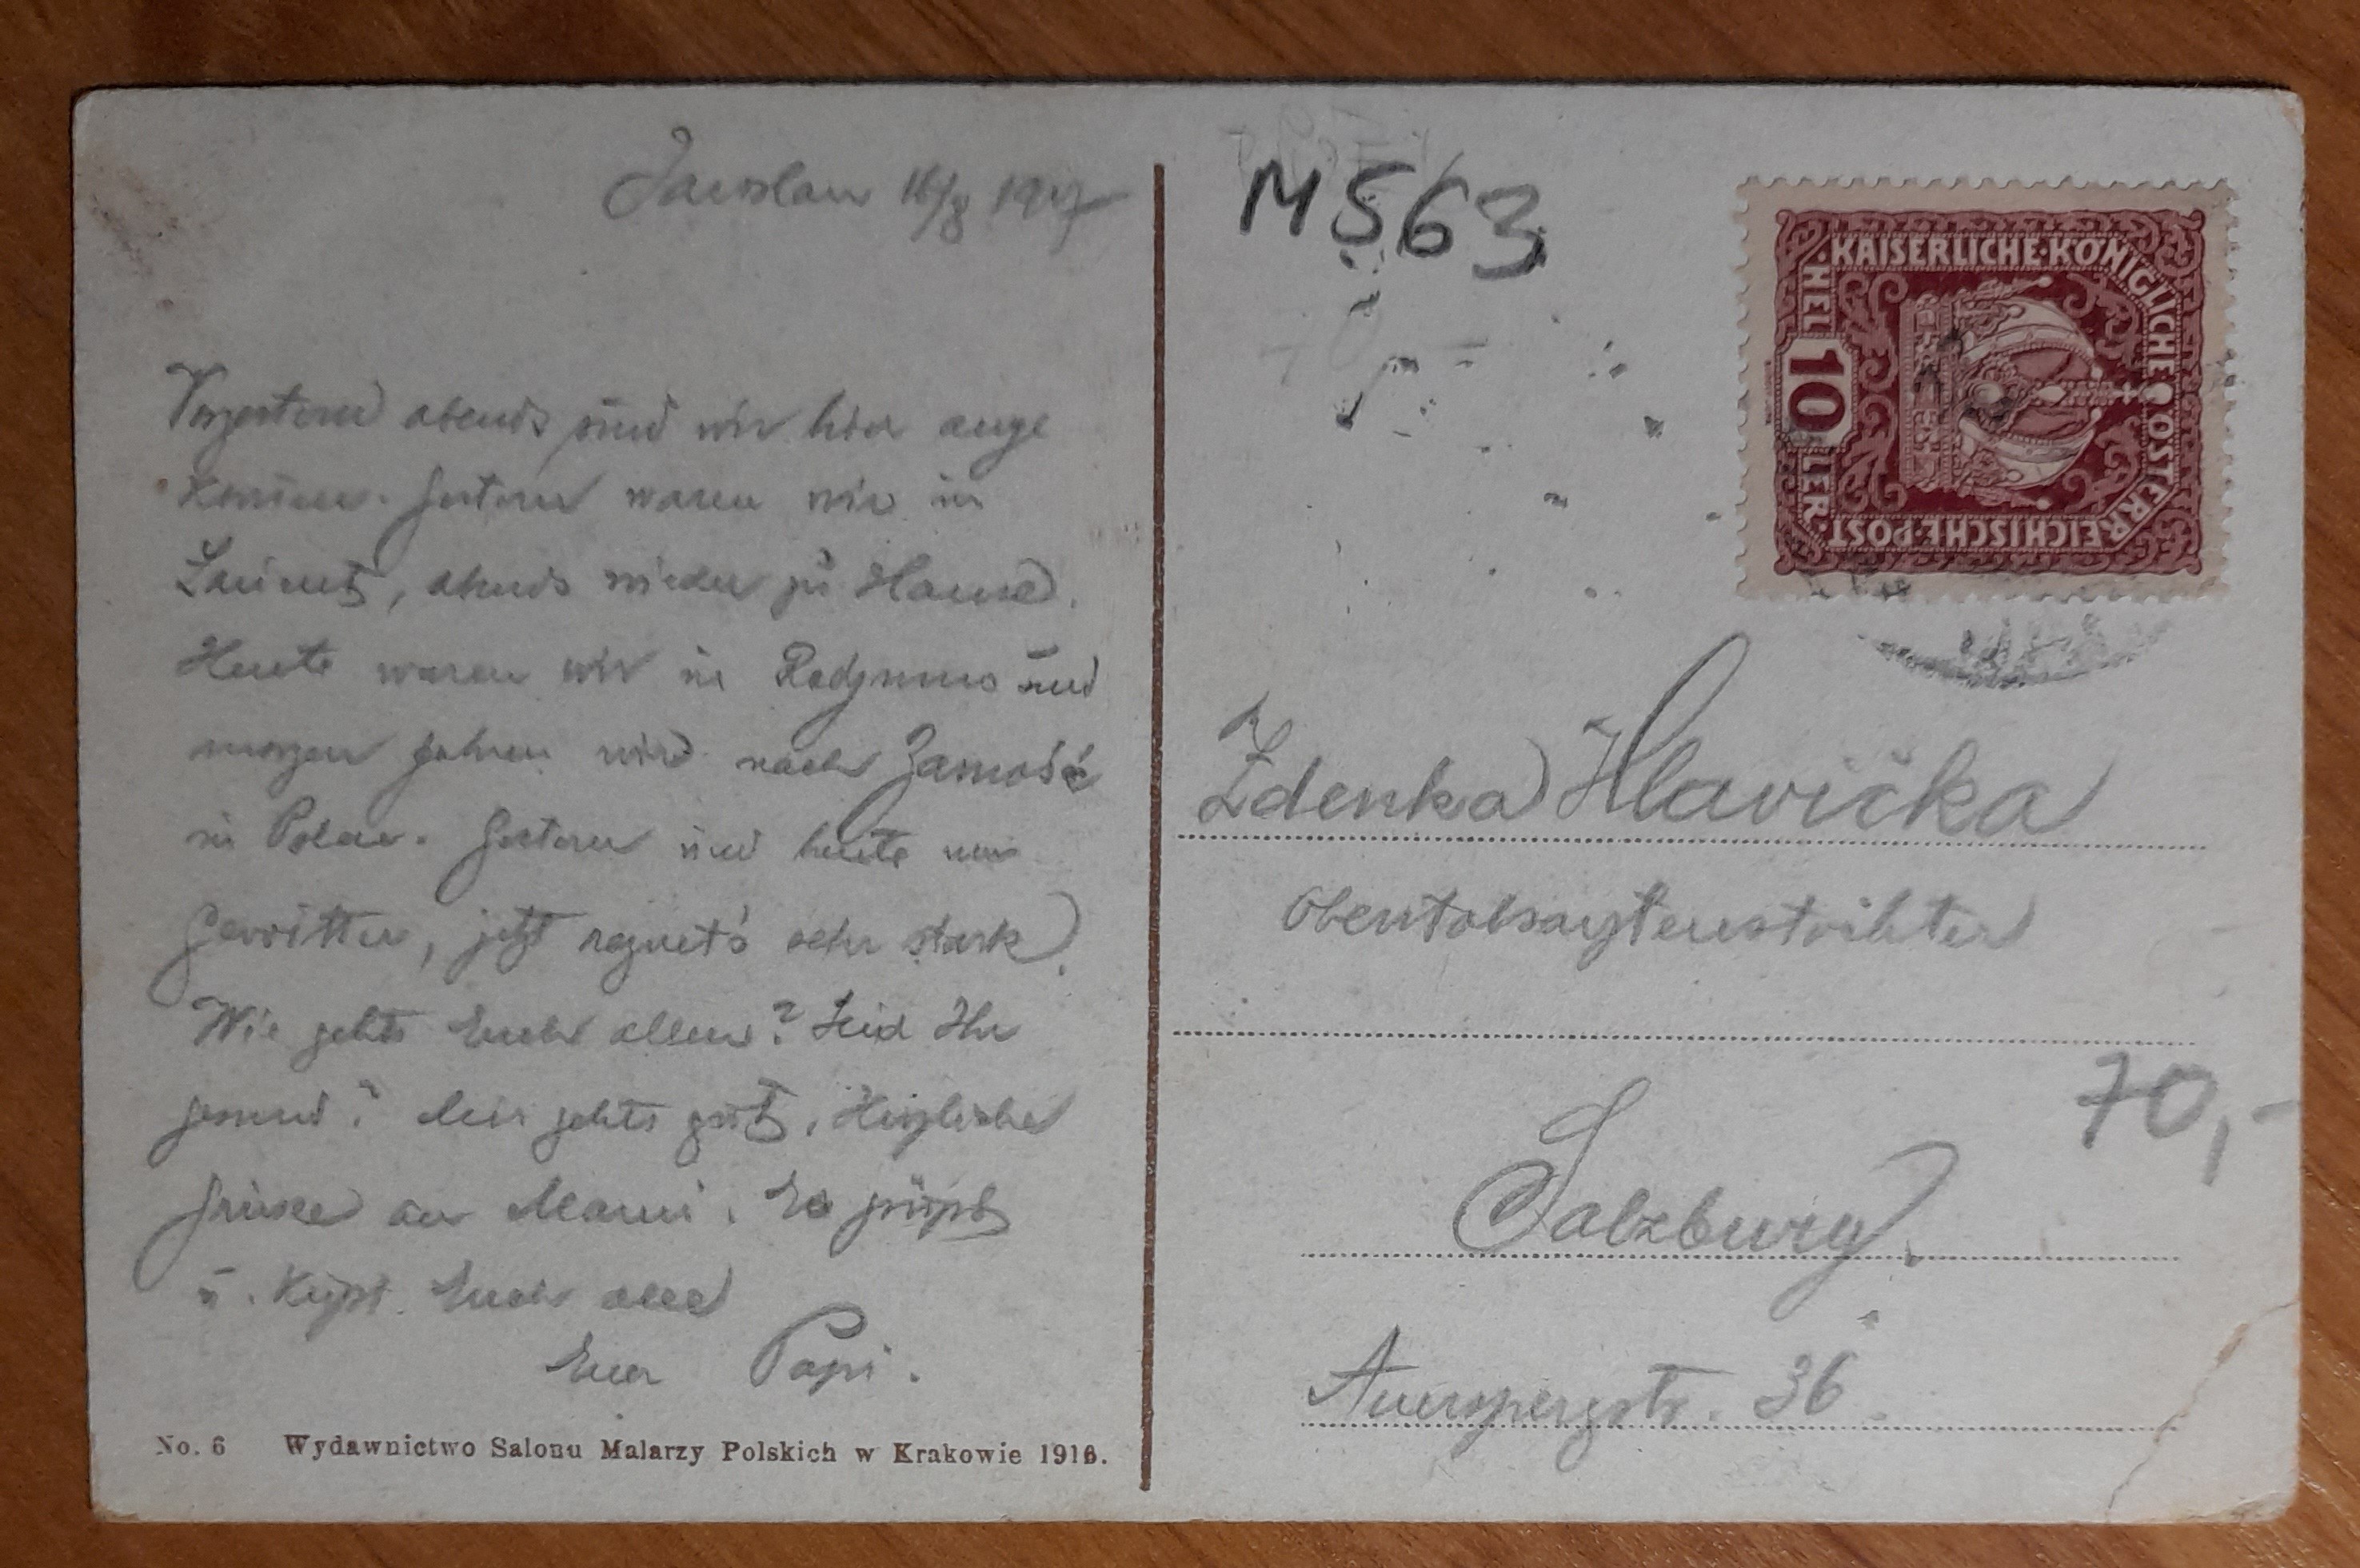 Jaroslau 16/8 1917
Vorgestern abends sind wir hier ange
kommen. Gestern waren wir in
Lancut, abends wieder zu Hause.
Heute waren wir in Radymno und
morgen fahren wir nach Zamość
in Polen. Gestern und heute
Gewitter, jetzt regnet's sehr stark.
Wie gehts Euch allen? Seid Ihr
gesund? Mir gehts gut. Herzliche
Grüsse an Mami. Es grüsst
u. küsst Euch alle
Euer Papi.
No. 6 Wydawnictwo Salonu Malarzy Polskich w Krakowie 1916.
M 563
KAISERLICHE·KÖNIGLICHE ÖSTERREICHISCHE·POST
10
HELLER
Zdenka Hlavička
Oberstabsarztenstochter
70,-
Salzburg.
Auerspergstr. 36.